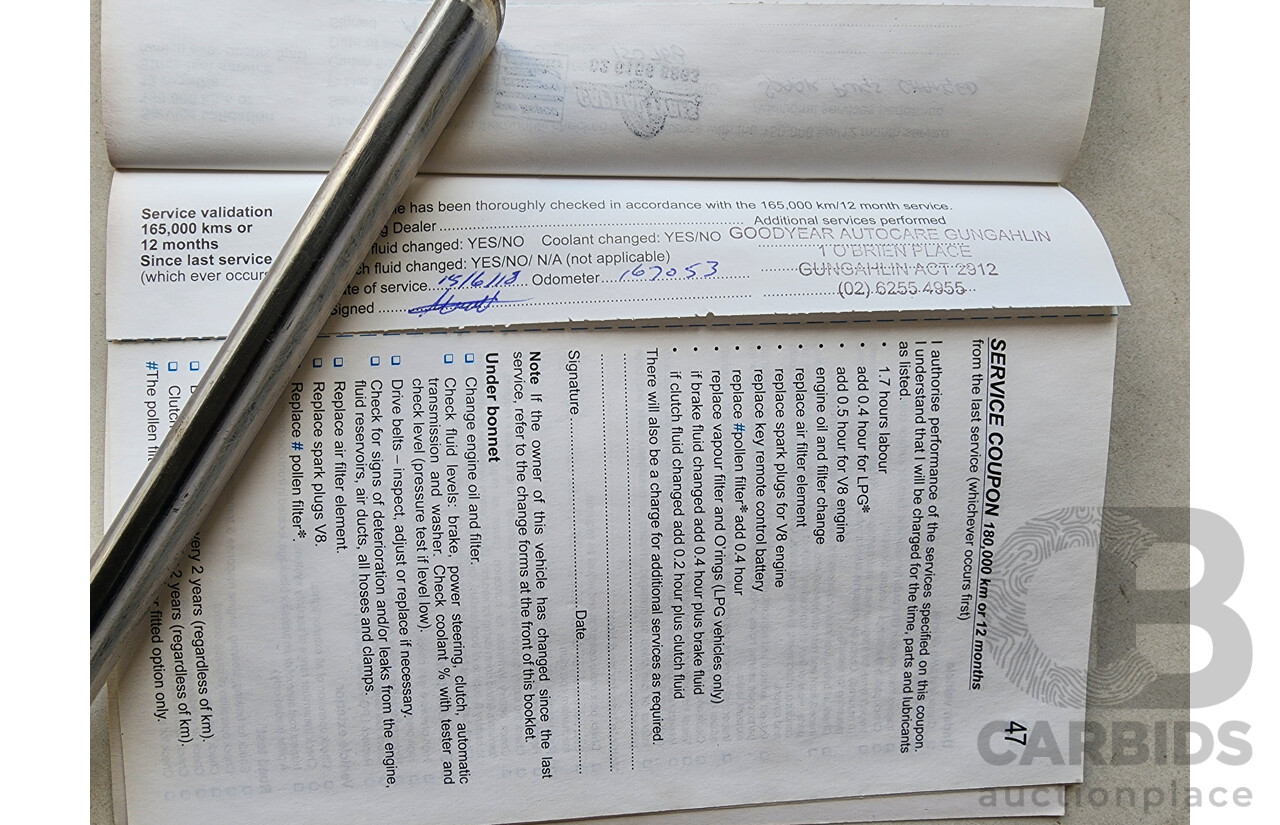 150 766
02 6156 8863
SPARK PLUGS CHANGED
Service validation
165,000 kms or
12 months
Since last service
(which ever occurs
e has been thoroughly checked in accordance with the 165,000 km/12 month service.
g Dealer
Additional services performed
fluid changed: YES/NO Coolant changed: YES/NO
h fluid changed: YES/NO/ N/A (not applicable)
te of service 15/6/18 Odometer 167053
igned
GOODYEAR AUTOCARE GUNGAHLIN
1 O'BRIEN PLACE
GUNGAHLIN ACT 2912
(02) 6255 4955
47
SERVICE COUPON 180,000 km or 12 months
from the last service (whichever occurs first)
I authorise performance of the services specified on this coupon.
I understand that I will be charged for the time, parts and lubricants
as listed.
• 1.7 hours labour
• add 0.4 hour for LPG*
• add 0.5 hour for V8 engine
• engine oil and filter change
• replace air filter element
• replace spark plugs for V8 engine
• replace key remote control battery
• replace #pollen filter* add 0.4 hour
• replace vapour filter and O'rings (LPG vehicles only)
• if brake fluid changed add 0.4 hour plus brake fluid
• if clutch fluid changed add 0.2 hour plus clutch fluid
There will also be a charge for additional services as required.
Signature Date
Note If the owner of this vehicle has changed since the last
service, refer to the change forms at the front of this booklet.
Under bonnet
Change engine oil and filter.
Check fluid levels: brake, power steering, clutch, automatic
transmission and washer. Check coolant % with tester and
check level (pressure test if level low).
Drive belts – inspect, adjust or replace if necessary.
Check for signs of deterioration and/or leaks from the engine,
fluid reservoirs, air ducts, all hoses and clamps.
Replace air filter element.
Replace spark plugs V8.
Replace # pollen filter*.
very 2 years (regardless of km).
Clutch 2 years (regardless of km).
#The pollen fil r fitted option only.
CARBIDS
auctionplace